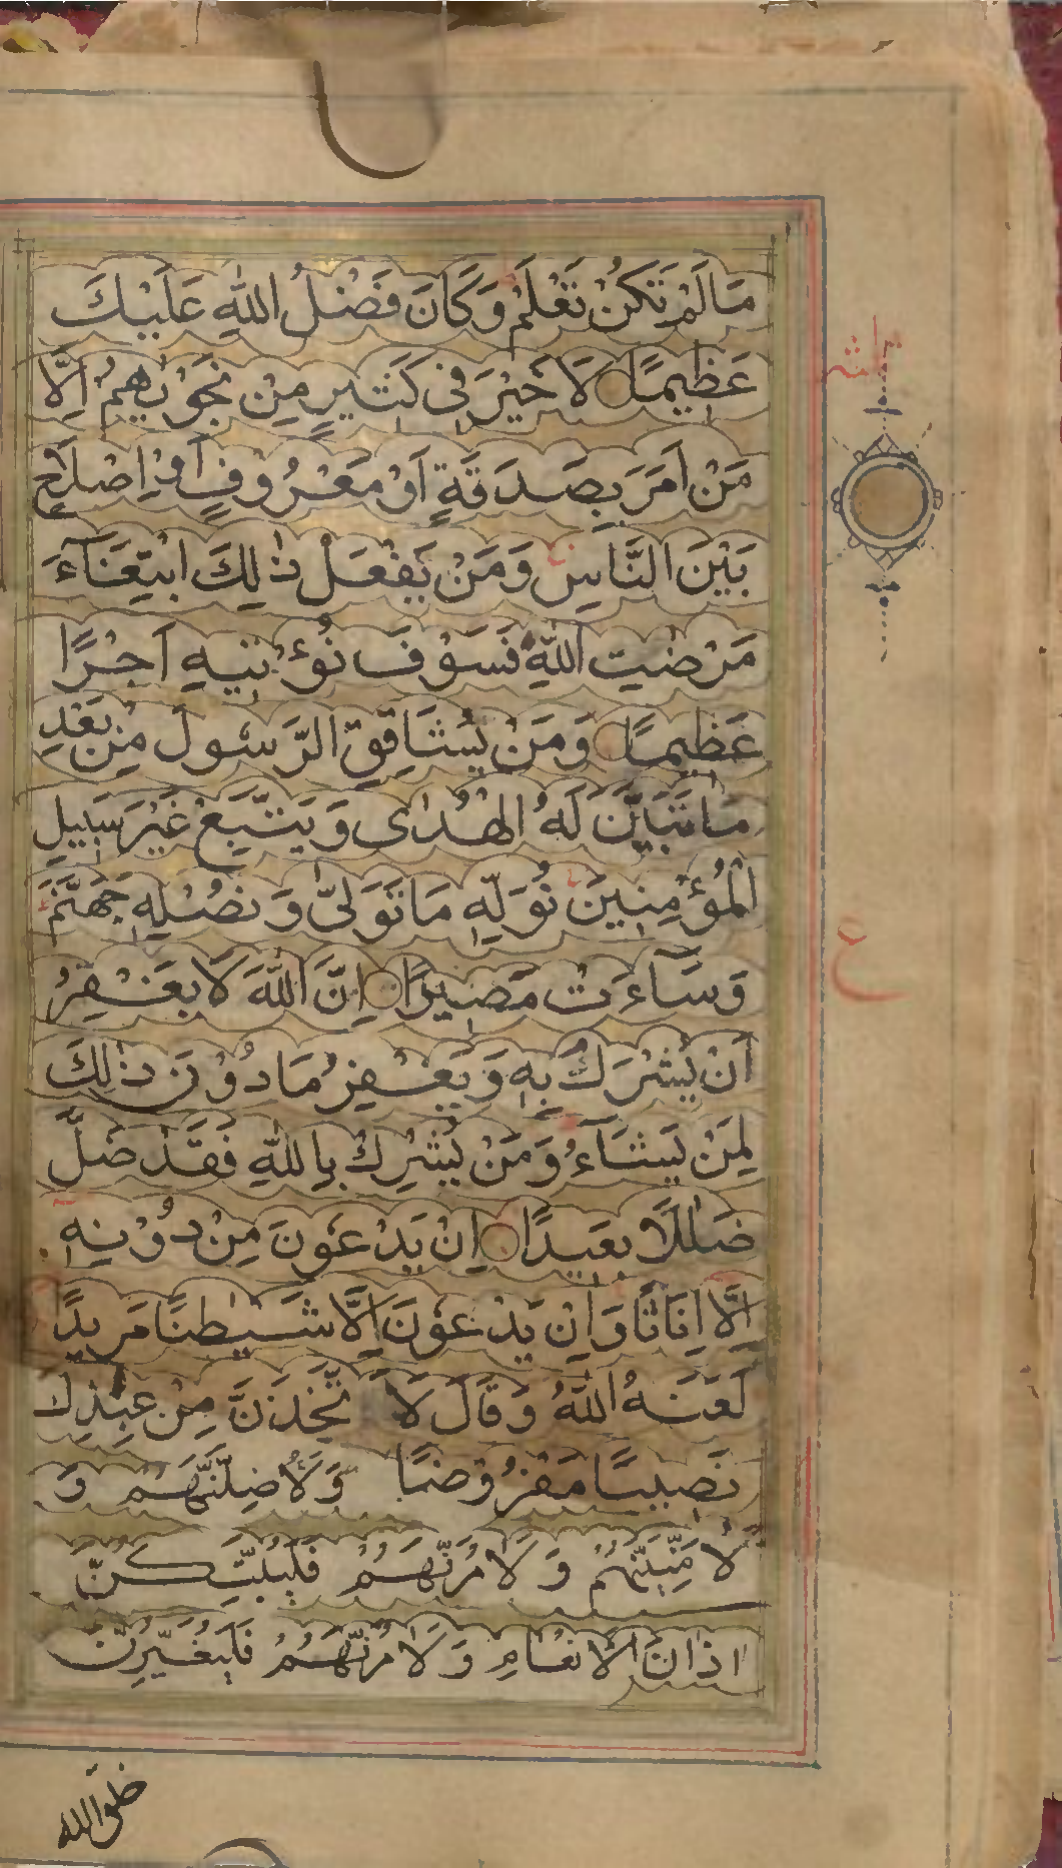 مَا لَمْ تَكُنْ تَعْلَمُ وَكَانَ فَضْلُ اللّٰهِ عَلَيْكَ
عَظِيمًا لَا خَيْرَ فِى كَثِيرٍ مِنْ نَجْوٰيهُمْ اِلَّا
مَنْ اَمَرَ بِصَدَقَةٍ اَوْ مَعْرُوْفٍ اَوْ اِصْلَاحٍ
بَيْنَ النَّاسِ وَمَنْ يَفْعَلْ ذٰلِكَ ابْتِغَآءَ
مَرْضَاتِ اللّٰهِ فَسَوْفَ نُؤْتِيهِ اَجْرًا
عَظِيمًا وَمَنْ يُشَاقِقِ الرَّسُولَ مِنْ بَعْدِ
مَا تَبَيَّنَ لَهُ الْهُدٰى وَيَتَّبِعْ غَيْرَ سَبِيلِ
الْمُؤْمِنِينَ نُوَلِّهٖ مَا تَوَلّٰى وَنُصْلِهٖ جَهَنَّمَ
وَسَآءَتْ مَصِيرًا اِنَّ اللّٰهَ لَا يَغْفِرُ
اَنْ يُشْرَكَ بِهٖ وَيَغْفِرُ مَا دُوْنَ ذٰلِكَ
لِمَنْ يَشَآءُ وَمَنْ يُشْرِكْ بِاللّٰهِ فَقَدْ ضَلَّ
ضَلٰلًا بَعِيدًا اِنْ يَدْعُونَ مِنْ دُوْنِهٖ
اِلَّا اِنَاثًا وَاِنْ يَدْعُوْنَ اِلَّا شَيْطٰنًا مَرِيدًا
لَعَنَهُ اللّٰهُ وَقَالَ لَا تَّخِذَنَّ مِنْ عِبٰدِكَ
نَصِيبًا مَفْرُوْضًا وَلَاُضِلَّنَّهُمْ وَ
لَاُمَنِّيَنَّهُمْ وَ لَاٰمُرَنَّهُمْ فَلَيُبَتِّكُنَّ
اٰذَانَ الْاَنْعَامِ وَ لَاٰمُرَنَّهُمْ فَلَيُغَيِّرُنَّ
خلق الله
ع